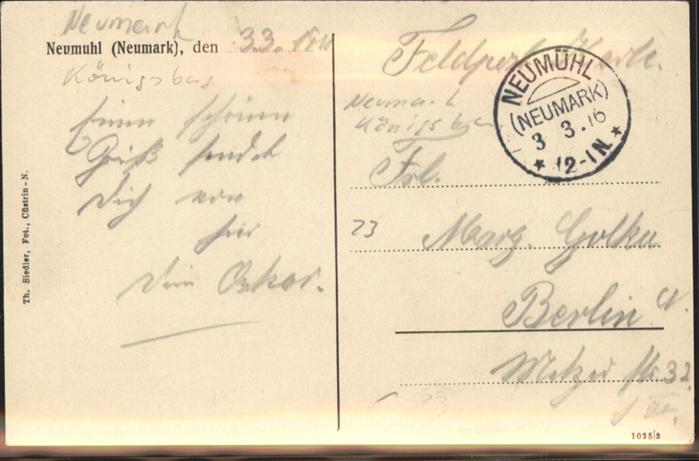 Neumark
Neumuhl (Neumark), den 3.3.
Königsberg
einen schönen
Gruß sendet
Dich von
hier
Dein Oskar.
Th. Siedler, Fot., Cüstrin-N.
Feldpost Karte.
NEUMÜHL
(NEUMARK)
3 3.16
* 12-1N. *
Neumark
Königsberg
Frl.
23
Marg. Golku
Berlin
Metzer Str. 32
1025/3